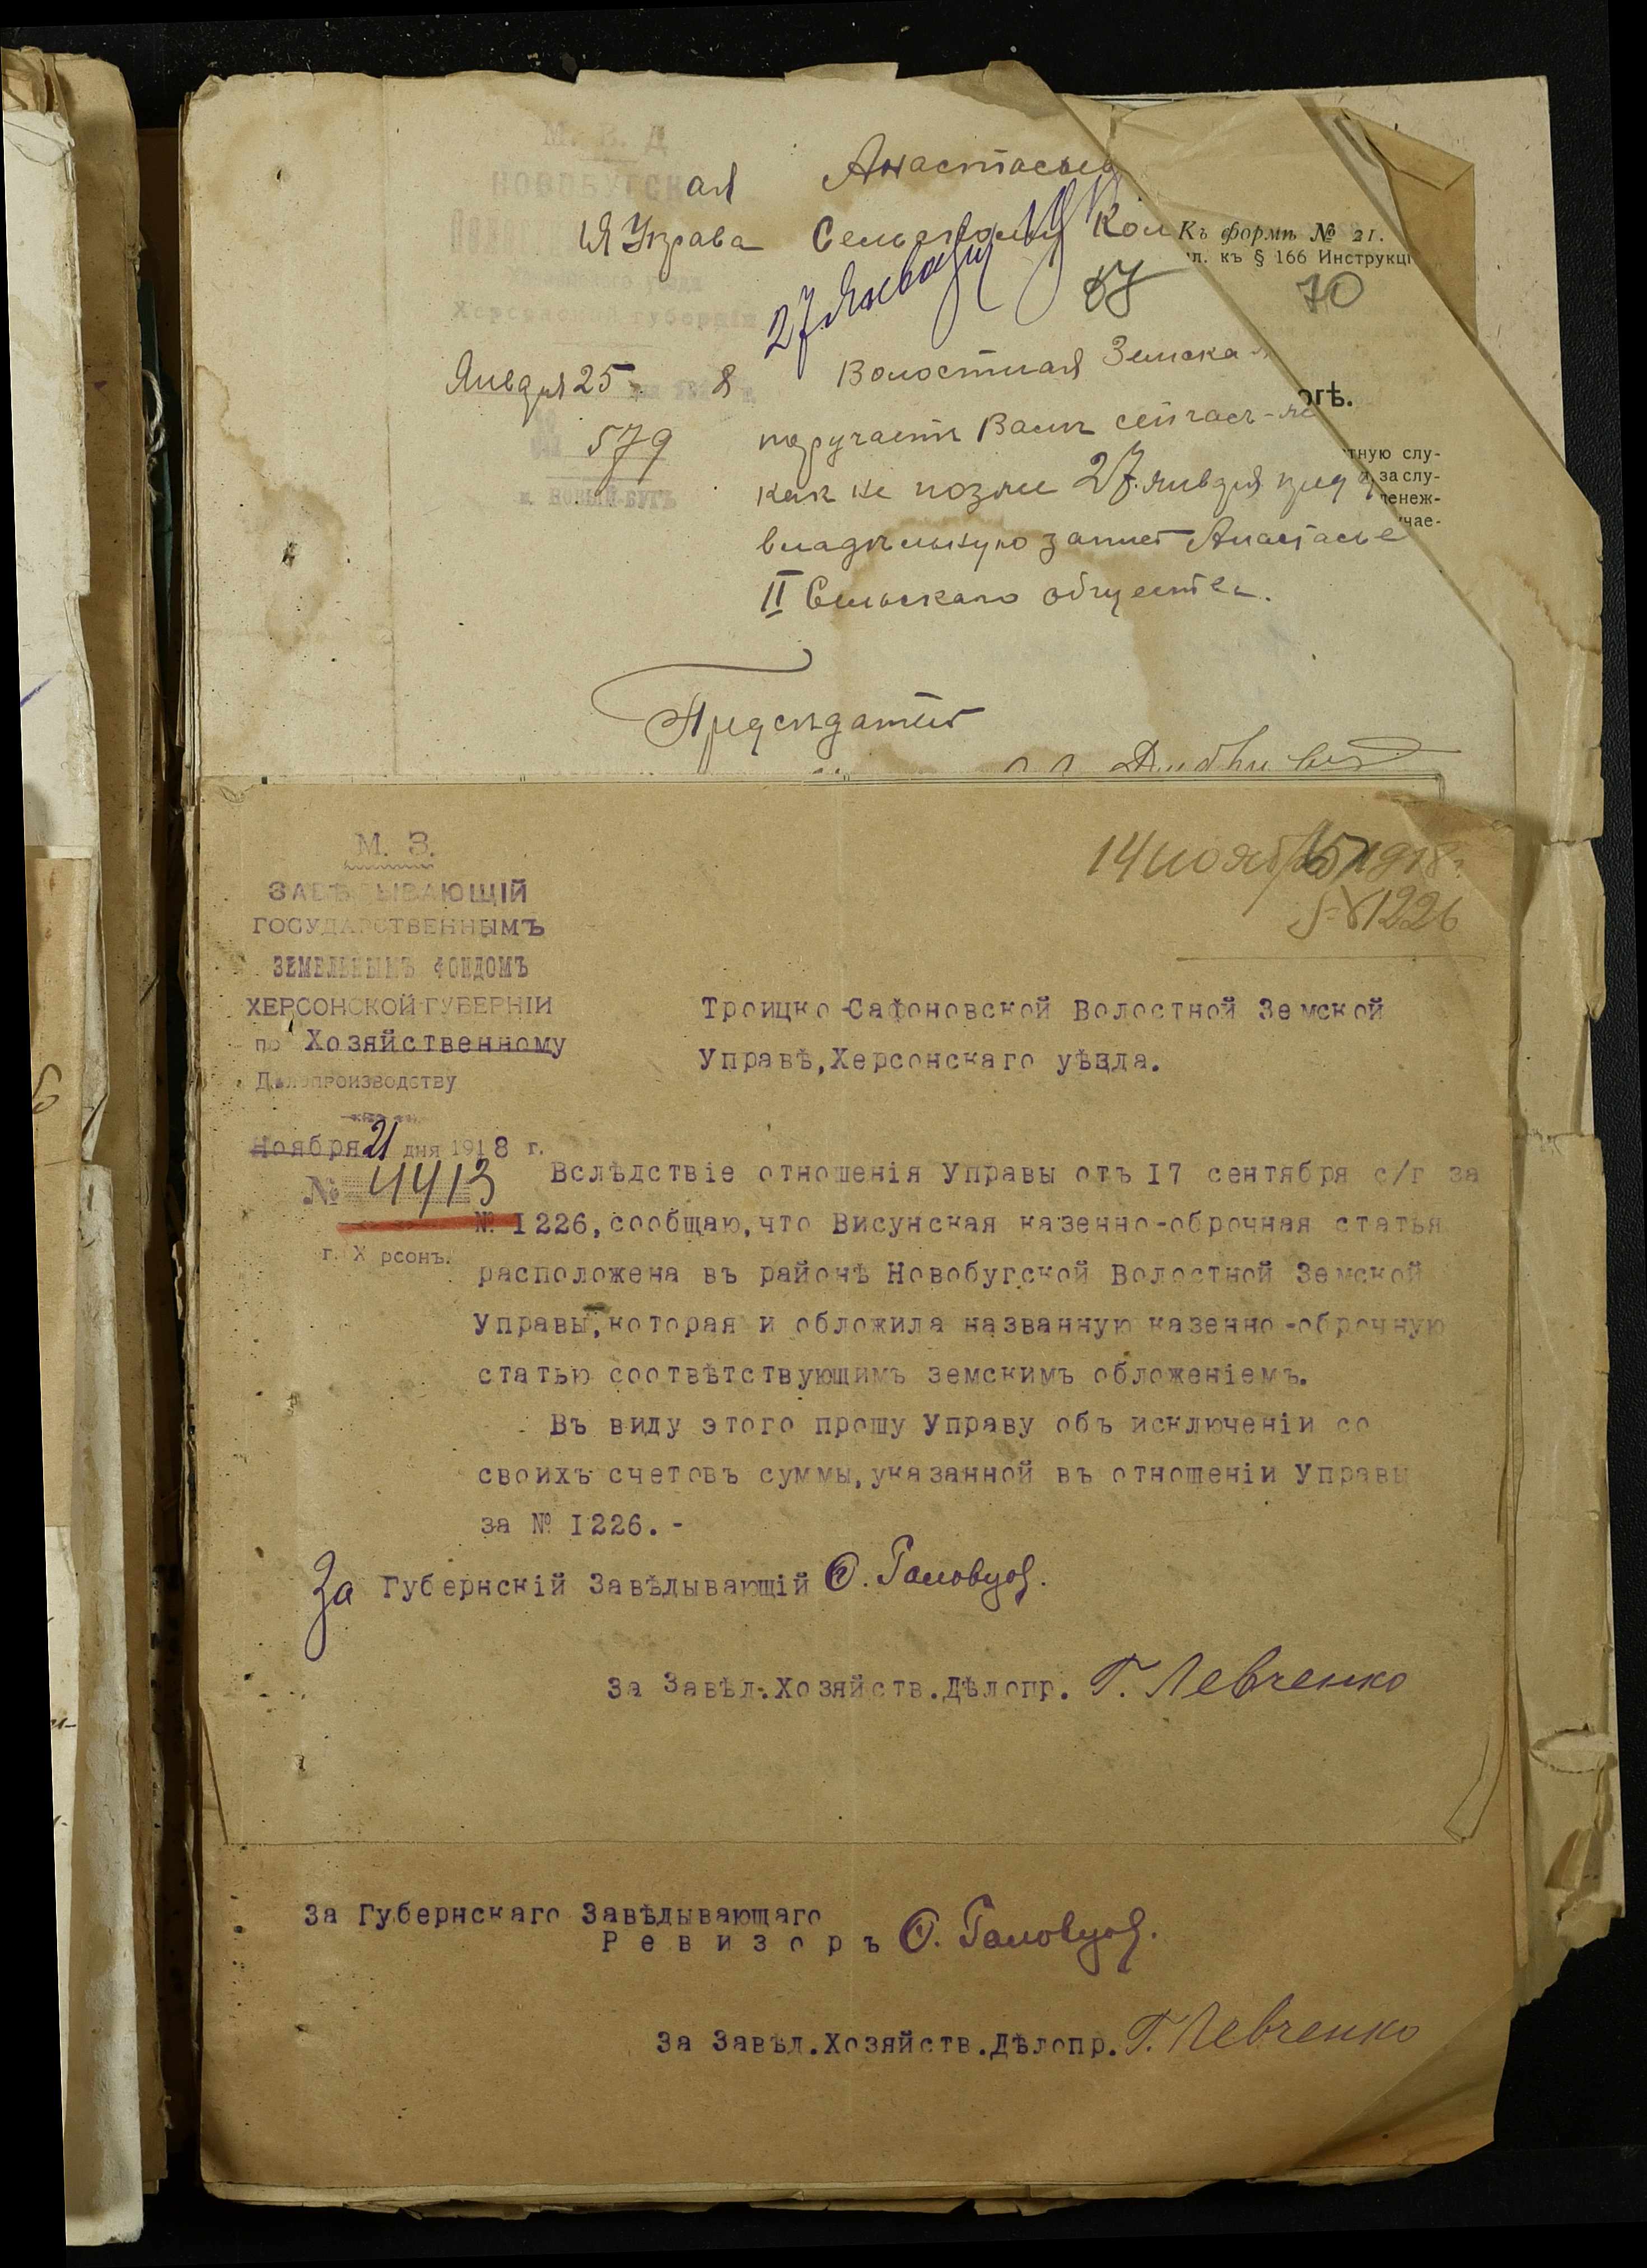 М. В. Д
НОВОБУГСКая
ая Управа
Херсонской губернiи
Января 25 8
579
м. НОВЫЙ-БУГЪ
Анастасьев
Сельскому Ком
27 января
57
Къ формѣ № 21.
къ § 166 Инструкцi
70
огѣ.
тную слу-
за слу-
денеж-
учае-
Волостная Земская
поручаетъ Вамъ сейчасъ-же
какъ не позже 27 января
владѣльную Анастасье
II Сельскаго общества.
Предсѣдатель
М. З.
ЗАВѢДЫВАЮЩIЙ
ГОСУДАРСТВЕННЫМЪ
ЗЕМЕЛЬНЫМЪ ФОНДОМЪ
ХЕРСОНСКОЙ ГУБЕРНIИ
по Хозяйственному
Дѣлопроизводству
Ноября 21 дня 1918 г.
№ 4413
г. Х рсонъ.
14 ноября 1918 г
№ 1226
Троицко-Сафоновской Волостной Земской
Управѣ, Херсонскаго уѣзда.
Вслѣдствiе отношенiя Управы отъ I7 сентября с/г за
№ I226, сообщаю, что Висунская казенно-оброчная статья
расположена въ районѣ Новобугской Волостной Земской
Управы, которая и обложила названную казенно-оброчную
статью соотвѣтствующимъ земскимъ обложенiемъ.
Въ виду этого прошу Управу объ исключенiи со
своихъ счетовъ суммы, указанной въ отношенiи Управы
за № I226. -
За Губернскiй Завѣдывающiй
За Завѣд. Хозяйств. Дѣлопр. Г. Левченко
За Губернскаго Завѣдывающаго
Ревизоръ
За Завѣд. Хозяйств. Дѣлопр. Г. Левченко